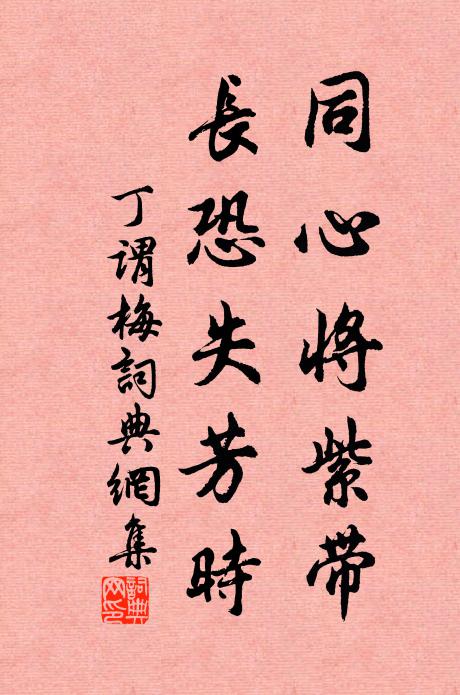 同心將紫帶
長恐失芳時
丁謂梅詞典網集
詞典網印